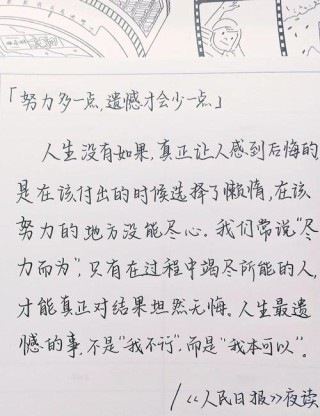 「努力多一点,遗憾才会少一点」
人生没有如果,真正让人感到后悔的
是在该付出的时候选择了懒惰,在该
努力的地方没能尽心。我们常说“尽
力而为”,只有在过程中竭尽所能的人,
才能真正对结果坦然无悔。人生最遗
憾的事,不是“我不行”,而是“我本可以”。
/《人民日报》夜读